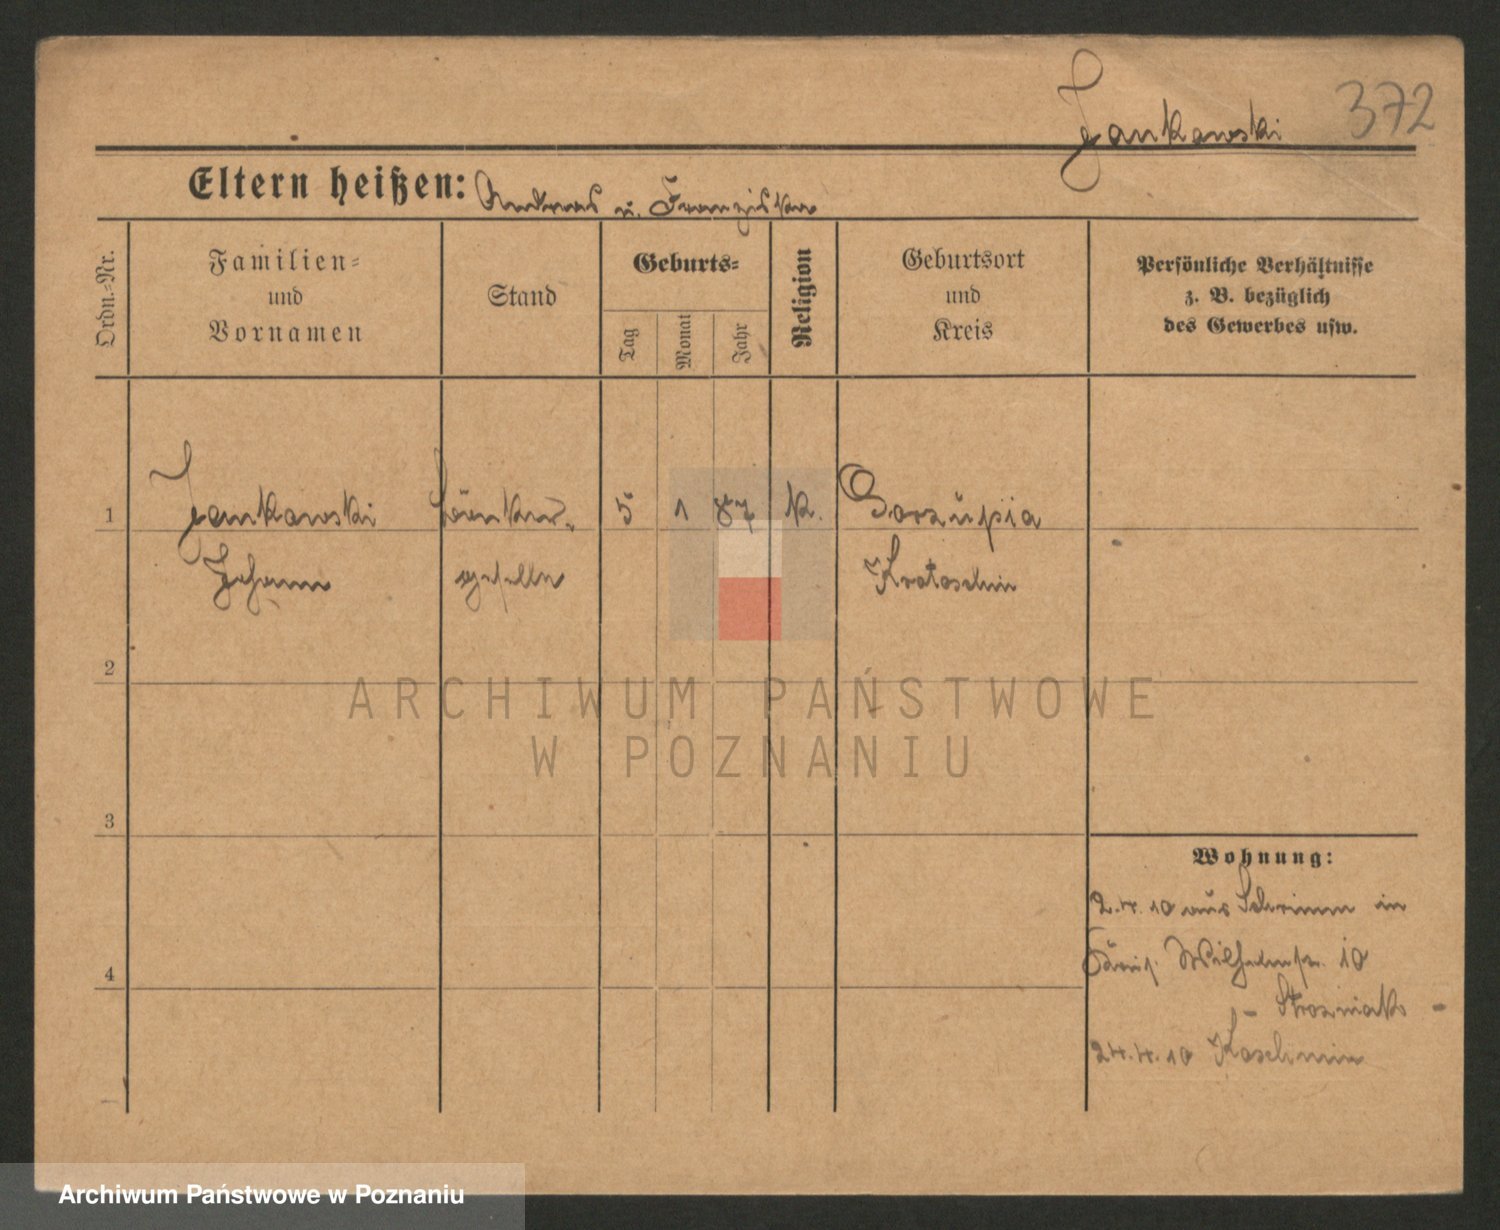 Jankowski 372
Eltern heißen: Andreas u. Franziska
Ordn.-Nr.
Familien-
und
Vornamen
Stand
Geburts-
Tag
Monat
Jahr
Religion
Geburtsort
und
Kreis
Persönliche Verhältnisse
z. B. bezüglich
des Gewerbes usw.
1 Jankowski 5 1 87 k. Gorzupia
Johann geselle Krotoschin
2
ARCHIWUM PAŃSTWOWE
W POZNANIU
3
Wohnung:
2.4.10 aus Schrimm in
Wilhelmstr. 10
4
24.4.10 Koschmin
Archiwum Państwowe w Poznaniu